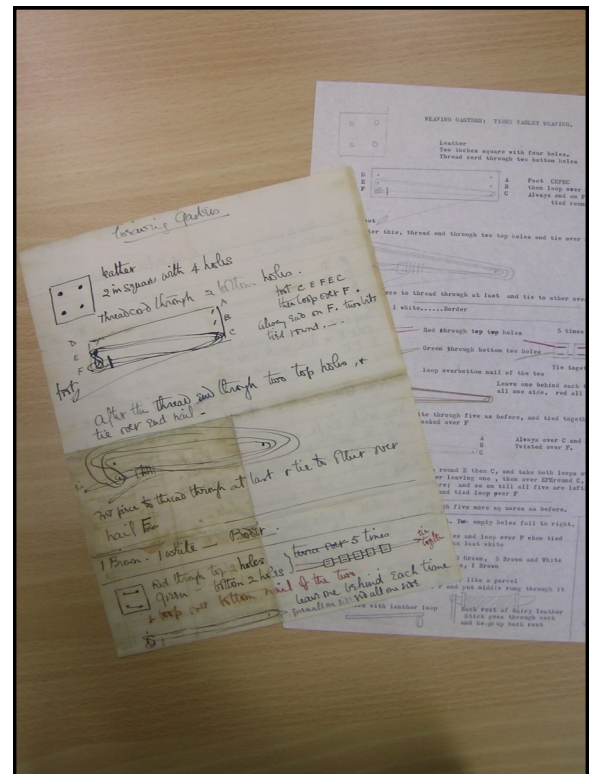 Weaving Garters
leather
2 in square with 4 holes
Thread cord through 2 bottom holes.
D
E
F
A
B
C
foot C E F E C
then loop over F.
always end on F. two bits
tied round
foot
After the thread end through two top holes, &
tie over end nail -
piece to thread through at last & tie to other over
nail
1 Brown - 1 white Border
Red through top 2 holes
Green - bottom 2 holes
5 times
tie together
& loop over bottom nail of the two
leave one behind each time
all one side
WEAVING GARTERS: TABLET WEAVING.
Leather
Two inches square with four holes.
Thread cord through two bottom holes
D
E
F
A
B
C
Foot CEFEC
then loop over
Always end on F
tied roun
ter this, thread end through two top holes and tie over
ce to thread through at last and tie to other ove
1 white......Border
Red through top two holes
5 times
Green through bottom two holes
Tie toget
loop overbottom nail of the two
Leave one behind each t
all one side, red all
ite through five as before, and tied togeth
ooked over F
A
B
Always over C and
Twisted over F.
round E then C, and take both loops o
er leaving one , then over EFEround C,
re; and so on till all five are left
and tied loop over F
h five more sq uares as before.
Two empty holes fall to right,
es and loop over F when tied
last white
Green, 5 Brown and White
, 1 Brown
like a parcel
F and put middle rung through it
ed with leather loop
Back rest of hairy leather
Stick goes through cork
back rest